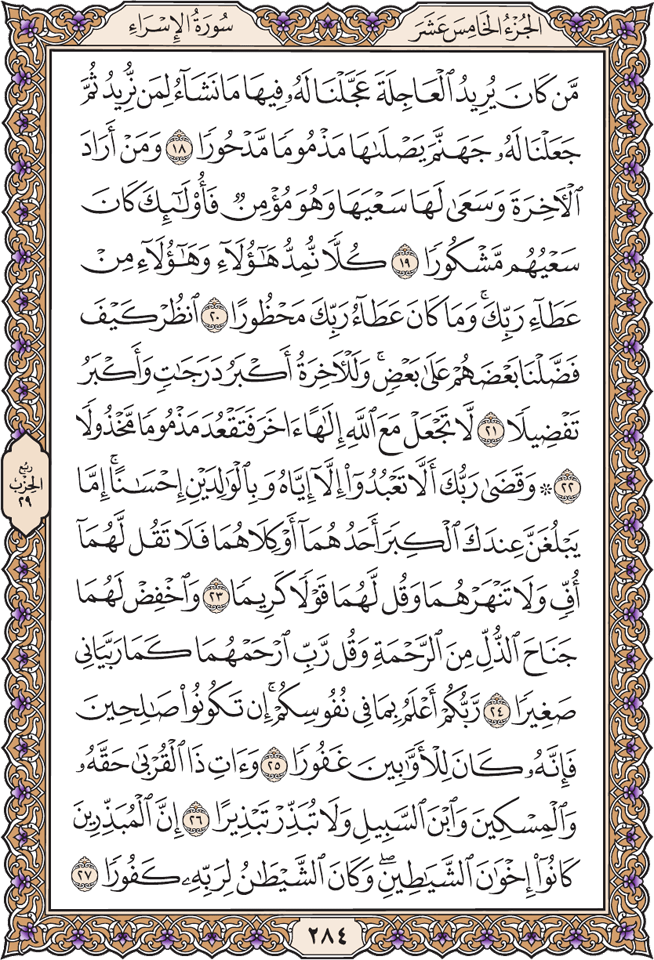 سُورَةُ الإِسْرَاءِ
الجُزْءُ الخَامِسَ عَشَرَ
مَّن كَانَ يُرِيدُ ٱلْعَاجِلَةَ عَجَّلْنَا لَهُۥ فِيهَا مَا نَشَآءُ لِمَن نُّرِيدُ ثُمَّ
جَعَلْنَا لَهُۥ جَهَنَّمَ يَصْلَىٰهَا مَذْمُومًا مَّدْحُورًا ١٨ وَمَنْ أَرَادَ
ٱلْأَخِرَةَ وَسَعَىٰ لَهَا سَعْيَهَا وَهُوَ مُؤْمِنٌ فَأُو۟لَـٰٓئِكَ كَانَ
سَعْيُهُم مَّشْكُورًا ١٩ كُلًّا نُّمِدُّ هَـٰٓؤُلَآءِ وَهَـٰٓؤُلَآءِ مِنْ
عَطَآءِ رَبِّكَ ۚ وَمَا كَانَ عَطَآءُ رَبِّكَ مَحْظُورًا ٢٠ ٱنظُرْ كَيْفَ
فَضَّلْنَا بَعْضَهُمْ عَلَىٰ بَعْضٍ ۚ وَلَلْأَخِرَةُ أَكْبَرُ دَرَجَـٰتٍ وَأَكْبَرُ
تَفْضِيلًا ٢١ لَّا تَجْعَلْ مَعَ ٱللَّهِ إِلَـٰهًا ءَاخَرَ فَتَقْعُدَ مَذْمُومًا مَّخْذُولًا
٢٢ ۞ وَقَضَىٰ رَبُّكَ أَلَّا تَعْبُدُوٓا۟ إِلَّآ إِيَّاهُ وَبِٱلْوَٰلِدَيْنِ إِحْسَـٰنًا ۚ إِمَّا
يَبْلُغَنَّ عِندَكَ ٱلْكِبَرَ أَحَدُهُمَآ أَوْ كِلَاهُمَا فَلَا تَقُل لَّهُمَآ
أُفٍّ وَلَا تَنْهَرْهُمَا وَقُل لَّهُمَا قَوْلًا كَرِيمًا ٢٣ وَٱخْفِضْ لَهُمَا
جَنَاحَ ٱلذُّلِّ مِنَ ٱلرَّحْمَةِ وَقُل رَّبِّ ٱرْحَمْهُمَا كَمَا رَبَّيَانِى
صَغِيرًا ٢٤ رَّبُّكُمْ أَعْلَمُ بِمَا فِى نُفُوسِكُمْ ۚ إِن تَكُونُوا۟ صَـٰلِحِينَ
فَإِنَّهُۥ كَانَ لِلْأَوَّٰبِينَ غَفُورًا ٢٥ وَءَاتِ ذَا ٱلْقُرْبَىٰ حَقَّهُۥ
وَٱلْمِسْكِينَ وَٱبْنَ ٱلسَّبِيلِ وَلَا تُبَذِّرْ تَبْذِيرًا ٢٦ إِنَّ ٱلْمُبَذِّرِينَ
كَانُوٓا۟ إِخْوَٰنَ ٱلشَّيَـٰطِينِ ۖ وَكَانَ ٱلشَّيْطَـٰنُ لِرَبِّهِۦ كَفُورًا ٢٧
رُبْعُ
الحِزْبِ
٢٩
٢٨٤